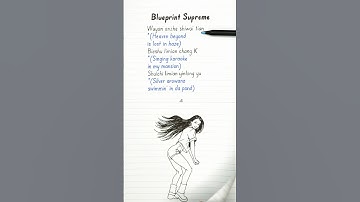 Blueprint Supreme
Wuyan erzhe shiwai tian
*(Heaven beyond
is lost in haze)
Bieshu limian chang K
*(Singing karaoke
in my mansion)
Shuichi limian yinlong yu
*(Silver arowana
swimmin' in da pond)